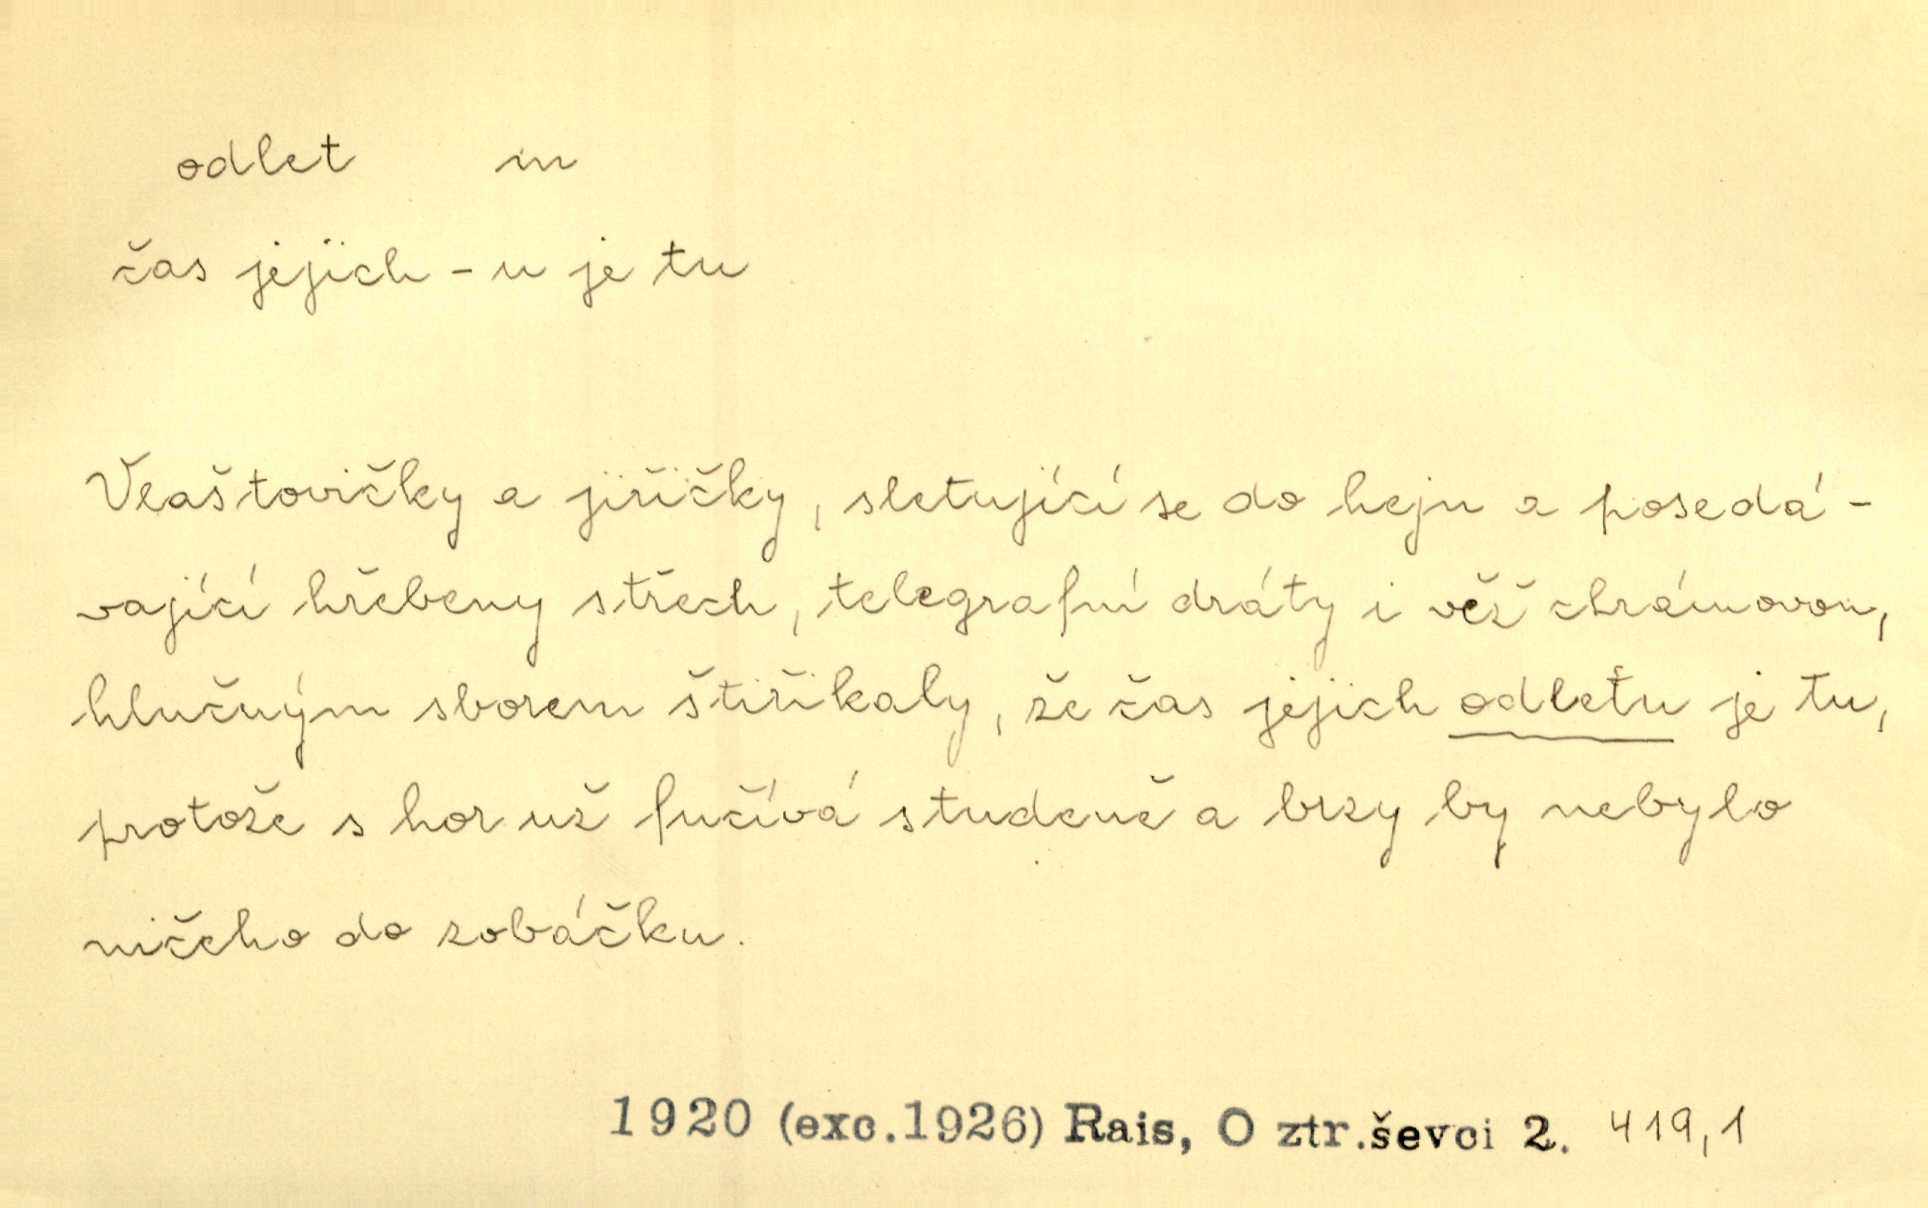 odlet m
čas jejich - u je tu
Vlaštovičky a jiřičky, sletující se do hejn a posedá-
vající hřebeny střech, telegrafní dráty i věž chrámovou,
hlučným sborem štiřikaly, že čas jejich odletu je tu,
protože s hor už fučívá studeně a brzy by nebylo
ničeho do zobáčku.
1920 (exc.1926) Rais, O ztr.ševci 2. 419,1